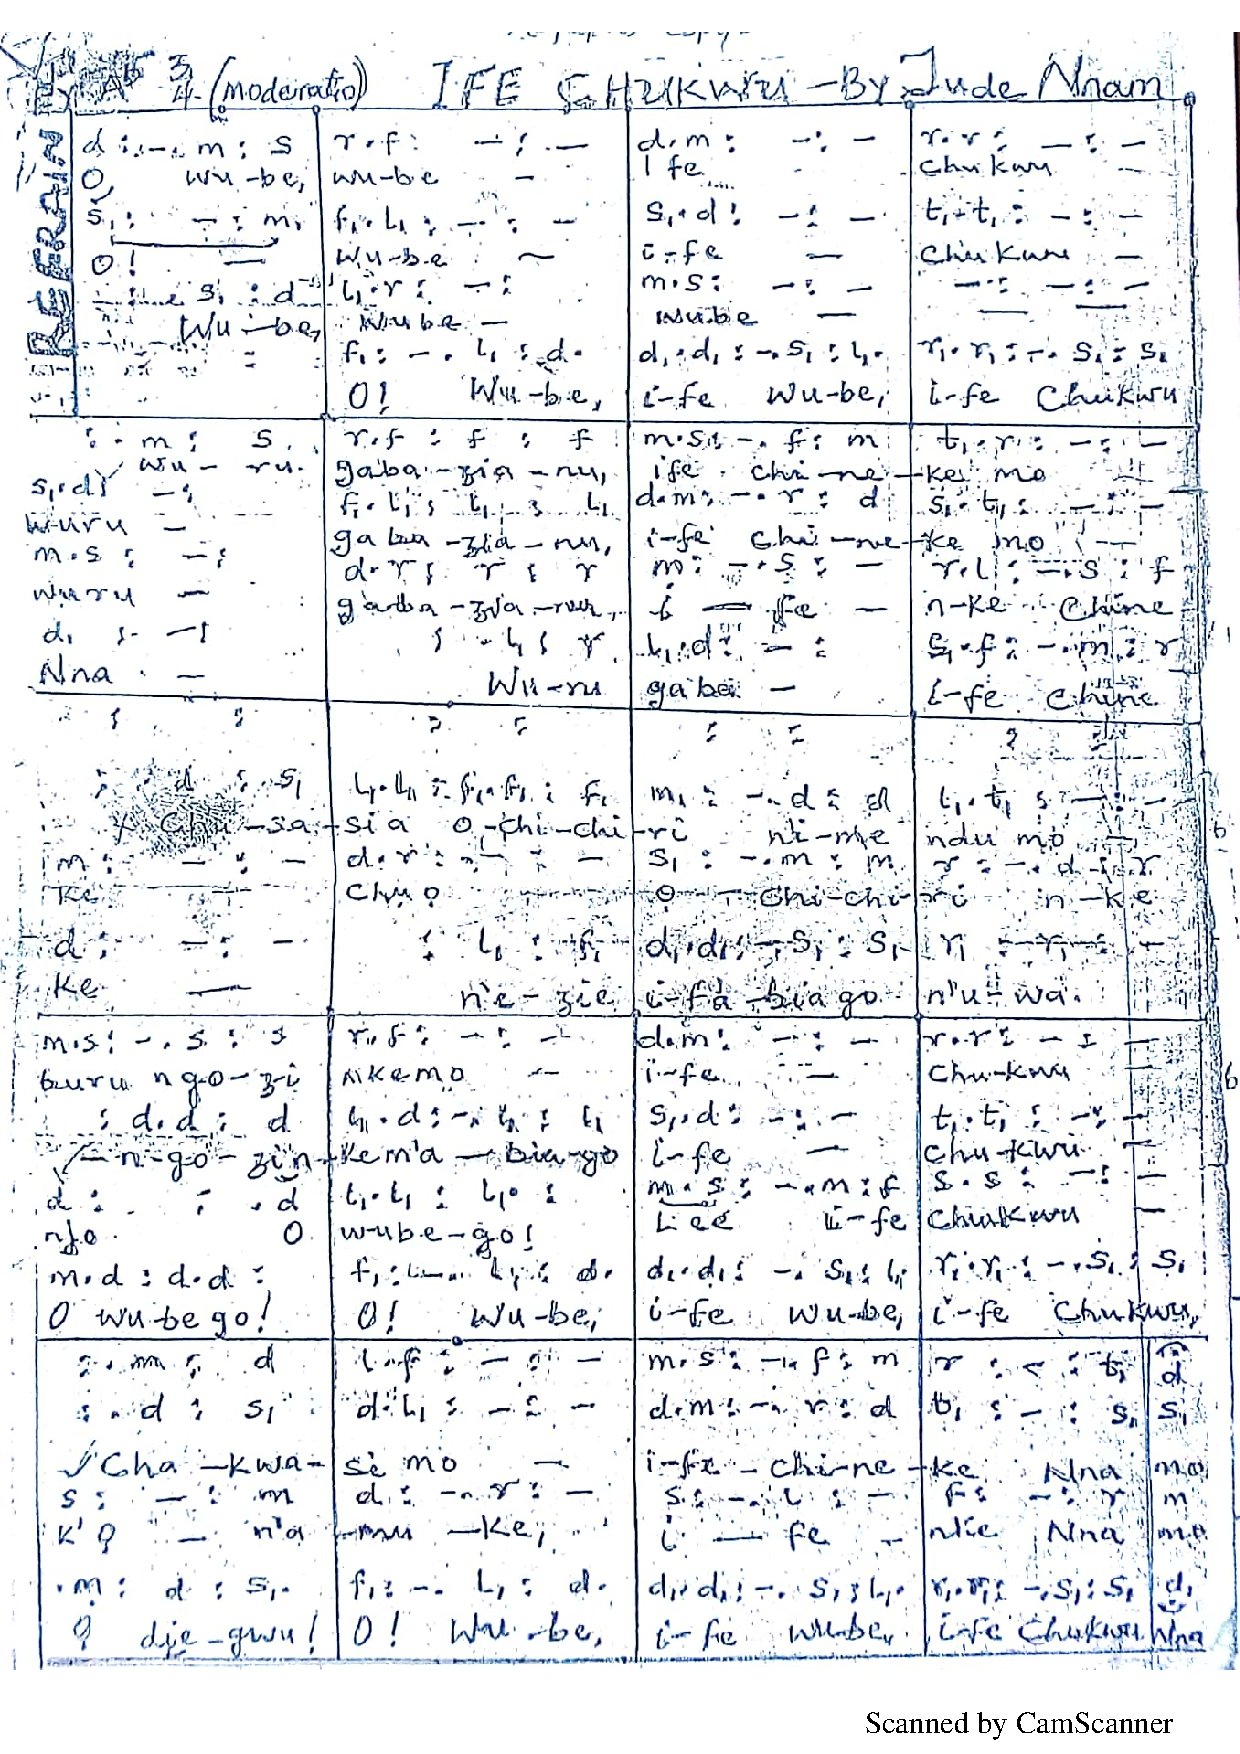 Key Ab 3/4 (moderato) IFE CHUKWU - By Jude Nnam
REFRAIN
d :-.m : s | r.f : - : - | d.m : - : - | r.r : - : -
O, wu-be, | wu-be - | I fe - | Chukwu -
s, : - : m, | f,.l, : - : - | s,.d : - : - | t,.t, : - : -
O! — | wu-be — | i-fe — | Chukwu —
s, : d | l,.r : - : | m.s : - : - | - : - : -
Wu-be, | wube — | wube —
f, : -. l, : d. | d,.d, : -.s, : l,. | r,.r, : -. s, : s,
O! Wu-be, | i-fe wu-be, | i-fe Chukwu
: . m : s. | r.f : f : f | m.s : -. f : m | t,.r : - : -
wu-ru. | gaba-zia-nu, | ife chi-ne-ke mo
s,.d : - : | f,.l, : l, : l, | d.m : -. r : d | s,.t, : - : -
wuru — | gaba-zia-nu, | i-fe chi-ne-ke mo
m.s : - : | d.r : r : r | m : -.s : - | r.l : -.s : f
wuru — | gaba-zia-nu, | i — fe — | n-ke Chine
d, : - : | : .l, : r | l,.d : - : | s,.f : -.m : r
Nna — | Wu-ru | gaba — | i-fe Chine
: : | : : | : : | : :
: d : . s, | l,.l, : f,.f, : f, | m, : -.d : d | l,.t, : - : -
Chu-sa-sia o-chi-chi-ri ni-me ndu mo
m : - : - | d.r : - : - | s, : -.m : m | r : -.d : r
Ke | Chuo | O — Chi-chi-ri n-ke
d : - : - | : l, : f, | d,.d, : -.s, : s, | r, : -.r, : -
Ke — | n'e-zie | i-fa-biago | n'u-wa.
m.s : -. s : s | r.f : - : - | d.m : - : - | r.r : - : -
buru ngo-zi | nkemo — | i-fe — | Chu-kwu
: d.d : d | l,.d : -.l, : l, | s,.d : - : - | t,.t, : - : -
n-go-zi n-kem'a-bia-go | i-fe — | Chu-kwu —
d : : .d | l,.l, : l,. : | m.s : -.m : f | s.s : - : -
njo. O | wube-go! | Lee i-fe | Chukwu —
m.d : d.d : | f, : -. l, : d. | d,.d, : -. s, : l, | r,.r, : -.s, : s,
O wu-be go! | O! Wu-be, | i-fe wu-be, | i-fe Chukwu,
: . m : d | l.f : - : - | m.s : -. f : m | r : - : t, | d
: . d : s, | d.l, : - : - | d.m : -. r : d | t, : - : s, | s,
Cha-kwa- | si mo — | i-fe-chi-ne-ke Nna | mo
s : - : m | d : -. r : - | s : -. l : - | f : - : r | m
k'o — n'a | -mu-ke, | i — fe - | nke Nna | mo
.m : d : s,. | f, : -. l, : d. | d,.d, : -. s, : l,. | r,.r, : -.s, : s, | d,
o dje-gwu! | O! Wu-be, | i-fe wu-be, | i-fe Chukwu | Nna
Scanned by CamScanner